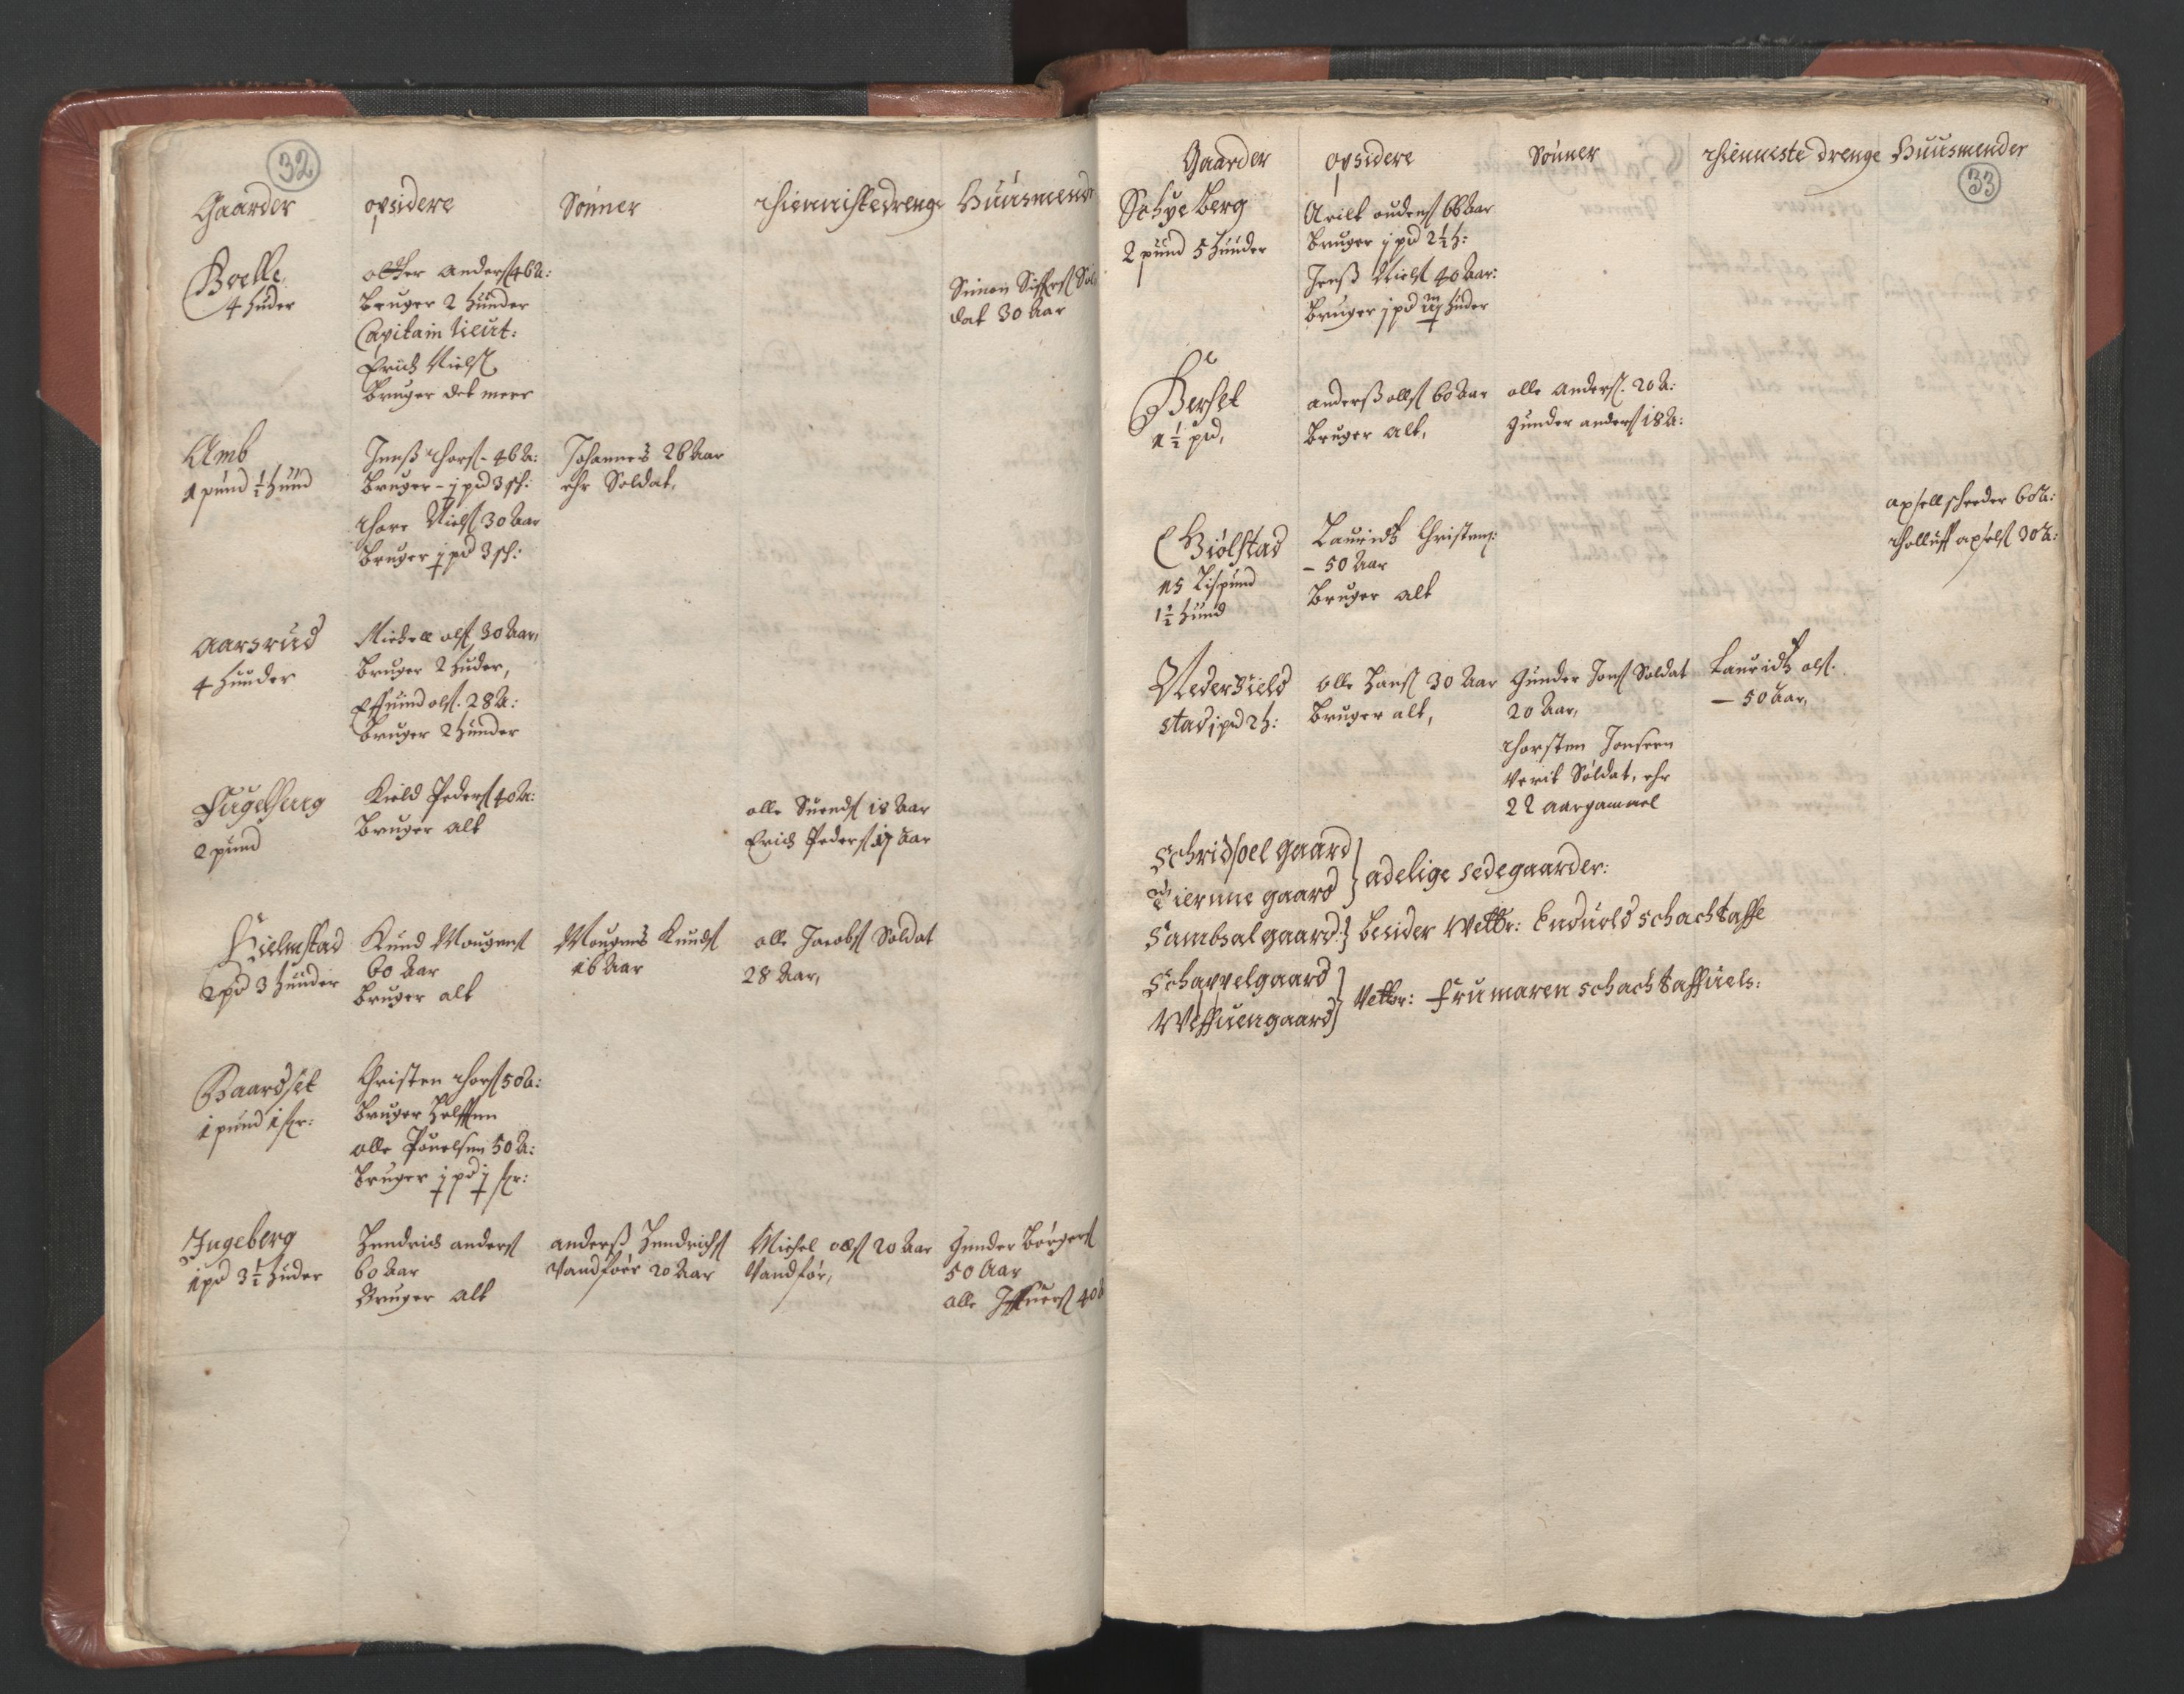 32
Gaarder opsidere Sønner Thiennistedrenge Huusmend
Boelle
4 Huder
olther Anders 46 A:
Bruger 2 Huuder
Capitain Lieut:
Erich Niels
Bruger det meer
Simon Siffers Sol
dat 30 Aar
Amb
1 pund ½ Hund
Jenß Thors - 46 A:
Bruger - j pd 3 sch:
Thore Niels 30 Aar
Bruger j pd 3 sch:
Johannes 26 Aar
ehr Soldat,
Aarsrud
4 Huuder
Michell ols 30 Aar,
Bruger 2 Huder,
Effuind ols. 28 A:
Bruger 2 Huuder
2 pund
Kield Peders 40 A:
Bruger alt
olle Suends 18 Aar
Erich Peders 17 Aar
Hielmstad
2 pd 3 Huuder
Knud Mougens
60 Aar
Bruger alt
Mougens Knuds
16 Aar
olle Jacobs Soldat
28 Aar,
Baardset
1 pund 1 skr:
Christen Thors 50 A:
Bruger Helffen
olle Pouelsen 50 A:
Bruger j pd j skr:
Ingeberg
1 pd 3½ Huder
Hendrich anders
60 Aar
Bruger alt
anderß Hendrichs
Vandføer 20 Aar
Michel ols 20 Aar
Vandfør,
Gunder Børgers
50 Aar
olle Iffuers 40 A
33
Gaarder opsidere Sønner Thienneste drenge Huusmender
Schyeberg
2 pund 5 Huuder
Arilt oudens 66 Aar
Bruger j pd 2½ h:
Jenß Niels 40 Aar:
Bruger j pd iij Huder
Berset
1½ pd,
anderß olls 60 Aar
Bruger alt,
olle Anders. 20 A:
Gunder anders 18 A:
Biølstad
15 Lispund
1½ Hund
Lauridtz Christens:
- 50 Aar
Bruger alt
axsell schreder 60 A:
Tholluff axsels 30 A:
Nederkield
stad j pd 2 h:
olle Hans 30 Aar
Bruger alt,
Gunder Jons Soldat
20 Aar,
Thorsten Jonsenn
Verit Soldat, ehr
22 aar gamael
Lauridtz ols.
- 50 Aar,
Schridsoel gaard
Tiernne gaard } adelige sedegaarder:
Sambsal gaard } besider Welbr: Enduold schachtaffle
Schappelgaard
Weffuengaard } Velbr: fru maren schachtaffuels: